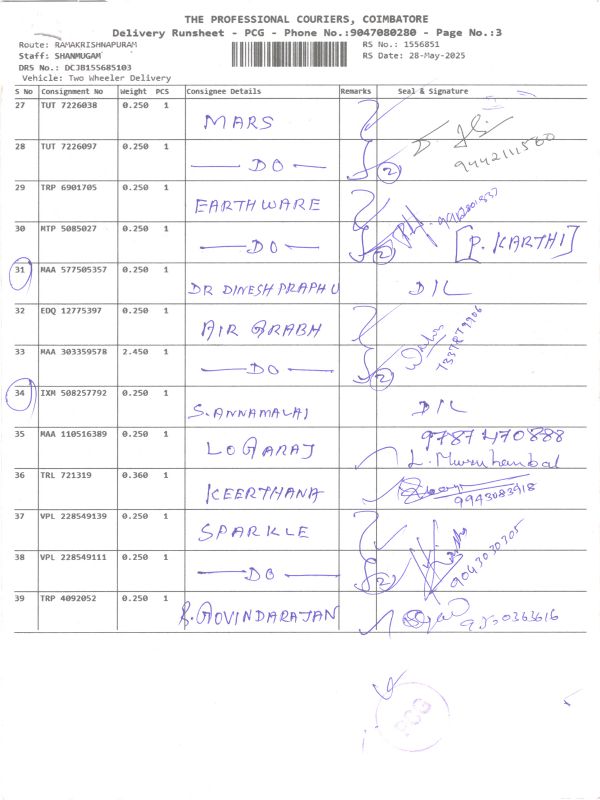 THE PROFESSIONAL COURIERS, COIMBATORE
Delivery Runsheet - PCG - Phone No.:9047080280 - Page No.:3
Route: RAMAKRISHNAPURAM
RS No.: 1556851
Staff: SHANMUGAM
RS Date: 28-May-2025
DRS No.: DCJB155685103
Vehicle: Two Wheeler Delivery
S No Consignment No Weight PCS Consignee Details Remarks Seal & Signature
27 TUT 7226038 0.250 1
MARS
28 TUT 7226097 0.250 1
DO 2 9442111560
29 TRP 6901705 0.250 1
EARTHWARE
30 MTP 5085027 0.250 1
DO 2 [P. KARTHI]
31 MAA 577505357 0.250 1
DR DINESH PRAPHU D/L
32 EDQ 12775397 0.250 1
AIR GRABH
33 MAA 303359578 2.450 1
DO 2
34 IXM 508257792 0.250 1
S. ANNAMALAI D/L
35 MAA 110516389 0.250 1 9787470888
LOGARAJ
36 TRL 721319 0.360 1
KEERTHANA 9943083918
37 VPL 228549139 0.250 1
SPARKLE
38 VPL 228549111 0.250 1
DO 2 9043030305
39 TRP 4092052 0.250 1
S. GOVINDARAJAN
PCG